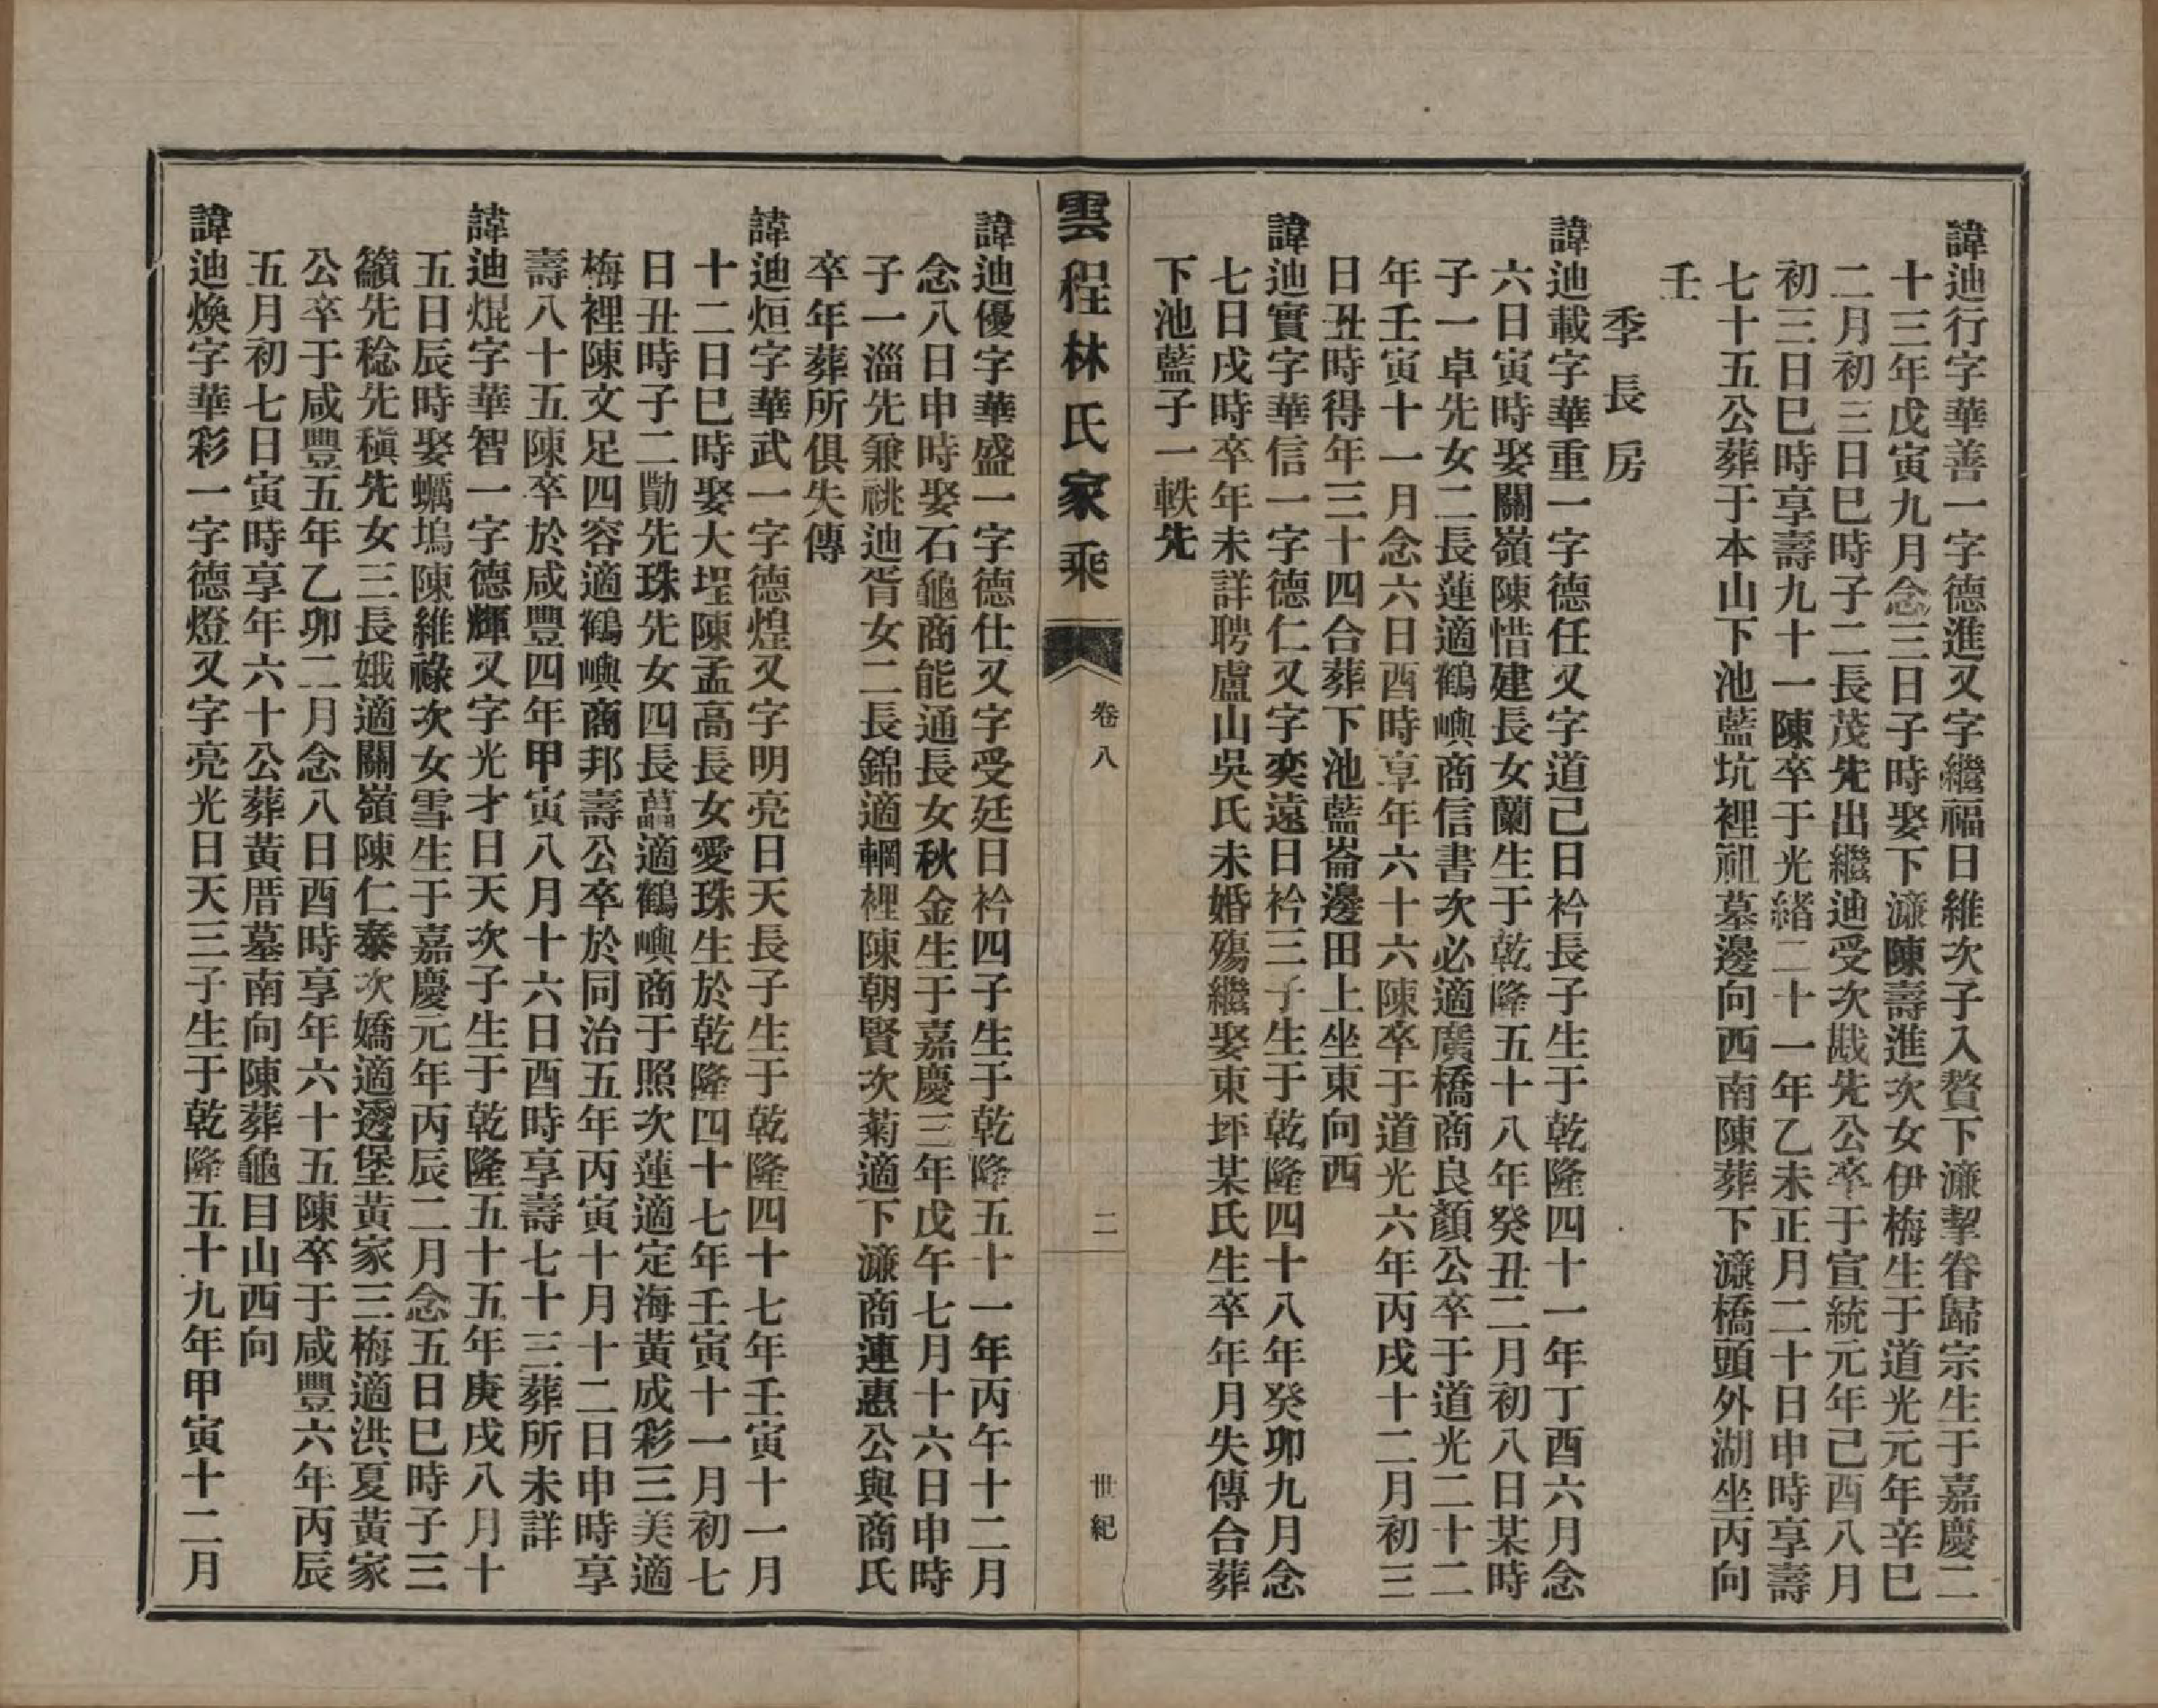 諱迪行字華善一字德進又字繼福日維次子入贅下濂挈眷歸宗生于嘉慶二
十三年戊寅九月念三日子時娶下濂陳壽進次女伊梅生于道光元年辛巳
二月初三日巳時子二長茂先出繼迪受次戡先公卒于宣統元年己酉八月
初三日巳時享壽九十一陳卒于光緒二十一年乙未正月二十日申時享壽
七十五公葬于本山下池藍坑裡祖墓邊向西南陳葬下濂橋頭外湖坐丙向
壬
季長房
諱迪載字華重一字德任又字道己日衿長子生于乾隆四十一年丁酉六月念
六日寅時娶關嶺陳惜建長女蘭生于乾隆五十八年癸丑二月初八日某時
子一卓先女二長蓮適鶴嶼商信書次必適廣橋商良顏公卒于道光二十二
年壬寅十一月念六日酉時享年六十六陳卒于道光六年丙戌十二月初三
日丑時得年三十四合葬下池藍崙邊田上坐東向西
諱迪實字華信一字德仁又字奕遠日衿三子生于乾隆四十八年癸卯九月念
七日戌時卒年未詳聘盧山吳氏未婚殤繼娶東坪某氏生卒年月失傳合葬
下池藍子一軼先
雲程林氏家乘
卷八
二
世紀
諱迪優字華盛一字德仕又字受廷日衿四子生于乾隆五十一年丙午十二月
念八日申時娶石龜商能通長女秋金生于嘉慶三年戊午七月十六日申時
子一淄先兼祧迪胥女二長錦適輞裡陳朝賢次菊適下濂商連惠公與商氏
卒年葬所俱失傳
諱迪烜字華武一字德煌又字明亮日天長子生于乾隆四十七年壬寅十一月
十二日巳時娶大埕陳孟高長女愛珠生於乾隆四十七年壬寅十一月初七
日丑時子二勩先珠先女四長藟適鶴嶼商于照次蓮適定海黃成彩三美適
梅裡陳文足四容適鶴嶼商邦壽公卒於同治五年丙寅十月十二日申時享
壽八十五陳卒於咸豐四年甲寅八月十六日酉時享壽七十三葬所未詳
諱迪焜字華智一字德輝又字光才日天次子生于乾隆五十五年庚戌八月十
五日辰時娶蠣塢陳維祿次女雪生于嘉慶元年丙辰二月念五日巳時子三
籲先稔先稹先女三長娥適關嶺陳仁泰次嬌適逶堡黃家三梅適洪夏黃家
公卒于咸豐五年乙卯二月念八日酉時享年六十五陳卒于咸豐六年丙辰
五月初七日寅時享年六十公葬黃厝墓南向陳葬龜目山西向
諱迪煥字華彩一字德燈又字亮光日天三子生于乾隆五十九年甲寅十二月